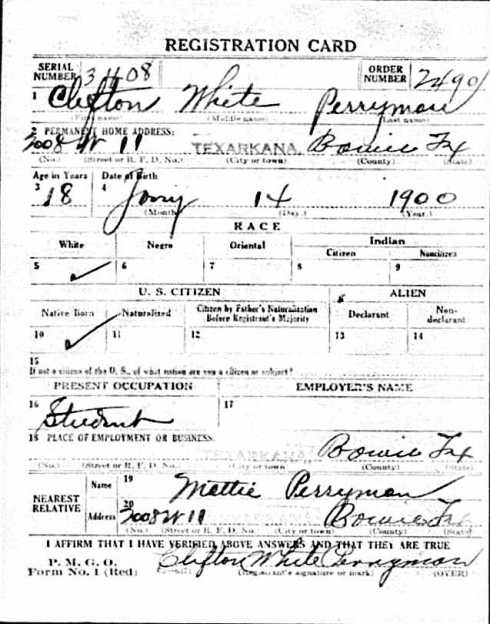 REGISTRATION CARD
SERIAL NUMBER 3408 ORDER NUMBER 2490
1 Clifton White Perryman
(First name) (Middle name) (Last name)
2 PERMANENT HOME ADDRESS:
2008 W 11 TEXARKANA, Bowie Tx
(No.) (Street or R. F. D. No.) (City or town) (County) (State)
Age in Years Date of Birth
3 18 4 Jany 14 1900
(Month) (Day.) (Year.)
RACE
White Negro Oriental Indian
Citizen Noncitizen
5 ✓ 6 7 8 9
U. S. CITIZEN ALIEN
Native Born Naturalized Citizen by Father's Naturalization Before Registrant's Majority Declarant Non-declarant
10 ✓ 11 12 13 14
15
If not a citizen of the U. S., of what nation are you a citizen or subject?
PRESENT OCCUPATION EMPLOYER'S NAME
16 Student 17
18 PLACE OF EMPLOYMENT OR BUSINESS:
TEXARKANA, Bowie Tx
(No.) (Street or R. F. D. No.) (City or town) (County) (State)
NEAREST RELATIVE Name 19 Mattie Perryman
Address 20 2008 W 11 Bowie Tx
(No.) (Street or R. F. D. No.) (City or town) (County) (State)
I AFFIRM THAT I HAVE VERIFIED ABOVE ANSWERS AND THAT THEY ARE TRUE
P. M. G. O.
Form No. 1 (Red) Clifton White Perryman
(Registrant's signature or mark) (OVER)